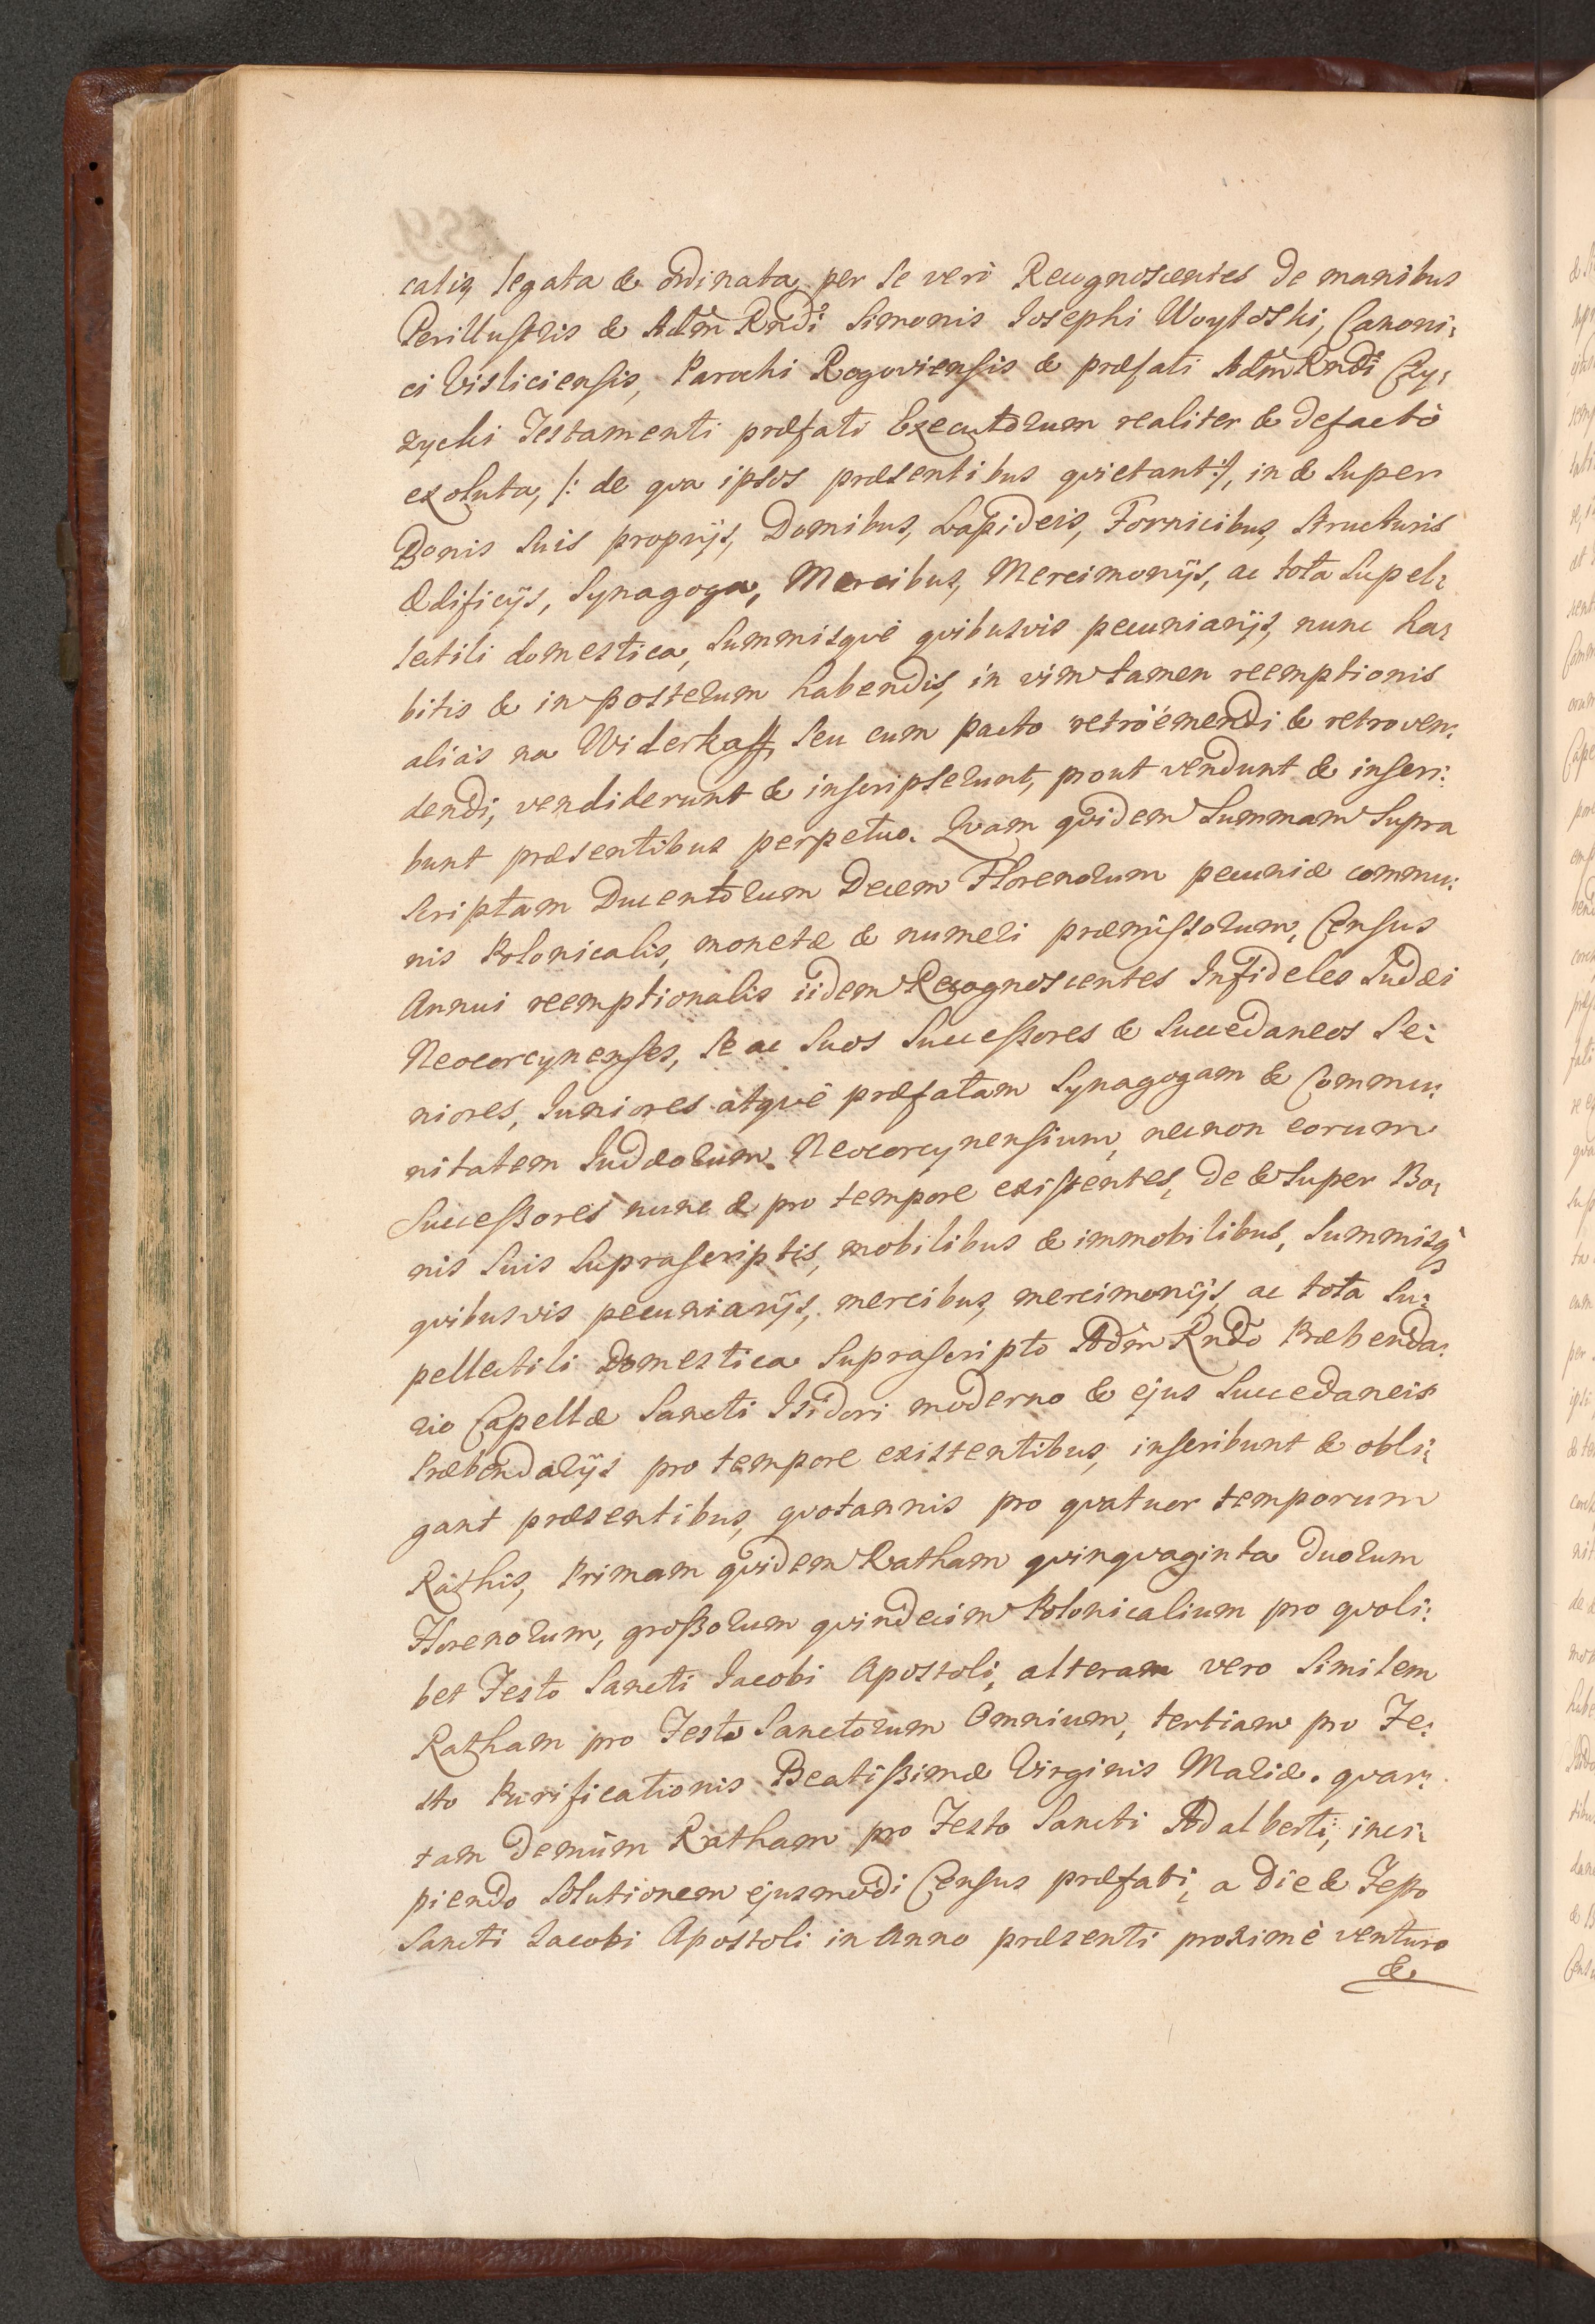 calis, legata & ordinata, per se verò Recognoscentes de manibus
Perillustris & Adm̃ Rndi Simonis Josephi Woytoski, Canoni:
ci Visliciensis, Parochi Rogoviensis & præfati Adm̃ Rndi Czy:
zycki Testamenti præfati Executorum realiter & defactò
exoluta, /: de qva ipsos præsentibus qvietant :/, in & super
Bonis suis proprijs, Domibus, Lapideis, Fornicibus, Structuris
Ædificijs, Synagoga, Mercibus, Mercimonijs, ac tota Supel:
lectili domestica, Summisqvè qvibusvis pecuniarijs, nunc ha:
bitis & in posterum habendis, in vim tamen reemptionis
aliàs na Widerkaff, seu cum pacto retròemendi & retroven:
dendi, vendiderunt & inscripserunt, prout vendunt & inscri:
bunt præsentibus perpetuo. Qvam qvidem Summam supra
scriptam Ducentorum Decem Florenorum pecuniæ commu:
nis Polonicalis, monetæ & numeri præmissorum, Census
Annui reemptionalis iidem Recognoscentes Infideles Judæi
Neocorcynenses, se ac suos Successores & Succedaneos Se:
niores, Juniores atqvè præfatam Synagogam & Commu:
nitatem Judæorum Neocorcynensium, necnon eorum
Successores nunc & pro tempore existentes, de & super Bo:
nis suis suprascriptis, mobilibus & immobilibus, Summisq̀
qvibusvis pecuniarijs, mercibus, mercimonijs, ac tota Su:
pellectili Domestica suprascripto Adm̃ Rndo Præbenda:
rio Capellæ Sancti Isidori moderno & ejus Succedaneis
Præbendarijs pro tempore existentibus, inscribunt & obli:
gant præsentibus, qvotannis pro qvatuor temporum
Rathis, Primam qvidem Ratham qvinqvaginta duorum
Florenorum, grossorum qvindecim Polonicalium pro qvoli:
bet Festo Sancti Jacobi Apostoli, alteram vero similem
Ratham pro Festo Sanctorum Omnium, tertiam pro Fe:
sto Purificationis Beatissimæ Virginis Mariæ. qvar:
tam demùm Ratham pro Festo Sancti Adalberti, inci:
piendo solutionem ejusmodi Census præfati, a die & Festo
Sancti Jacobi Apostoli in Anno præsenti proximè venturo
&